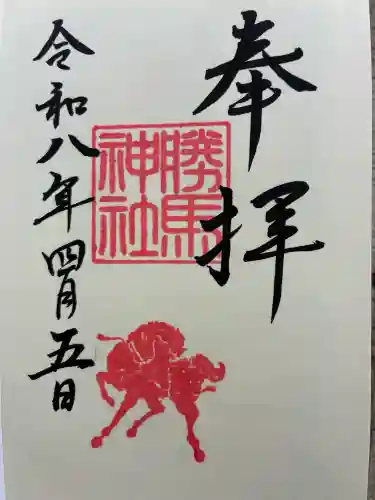 奉拝
勝馬
神社
令和八年四月五日